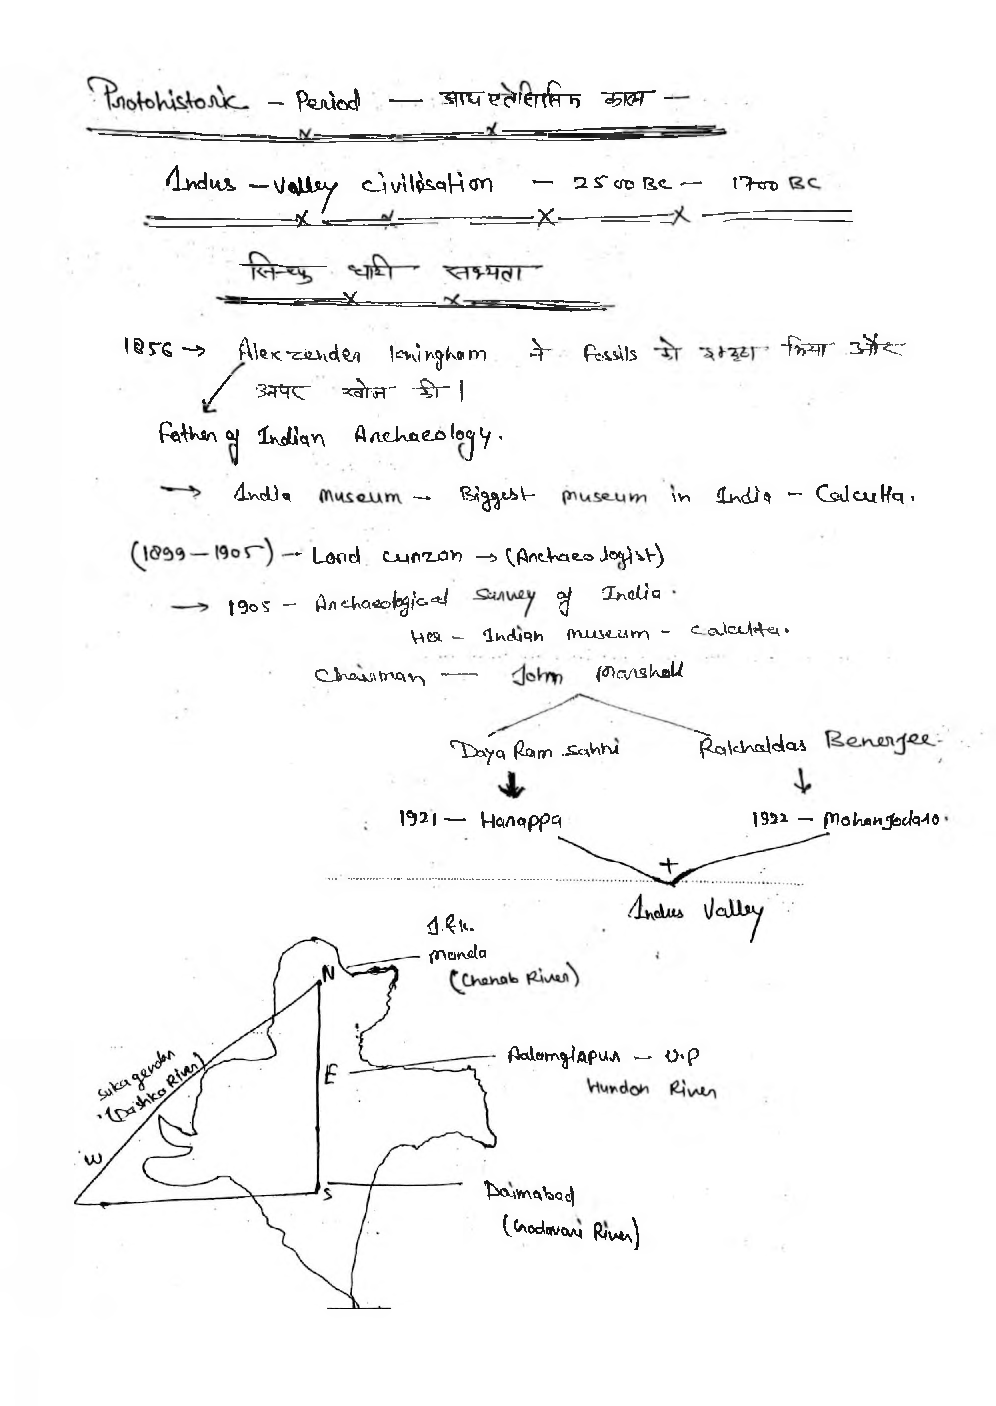 Protohistoric - Period — आद्य ऐतिहासिक काल —
Indus - Valley civilisation - 2500 BC - 1700 BC
सिन्धु घाटी सभ्यता
1856 → Alexzender Kaningham ने fossils को इकट्ठा किया और
खोज की |
Father of Indian Archaeology.
→ India museum - Biggest museum in India - Calcutta.
(1899-1905) - Lord curzon → (Archaeologist)
→ 1905 - Archaeological Survey of India.
Her - Indian museum - calcutta.
Chairman — John Marshall
Daya Ram Sahni Rakhaldas Benerjee
1921 — Harappa 1922 - Mohanjodaro.
+
Indus Valley
J.&K.
Manda
(Chenab River)
N
Sukagendar
(Dashka River)
Aalamgirpur - U.P
E
Hundon River
W
S
Daimabad
(Godavari River)